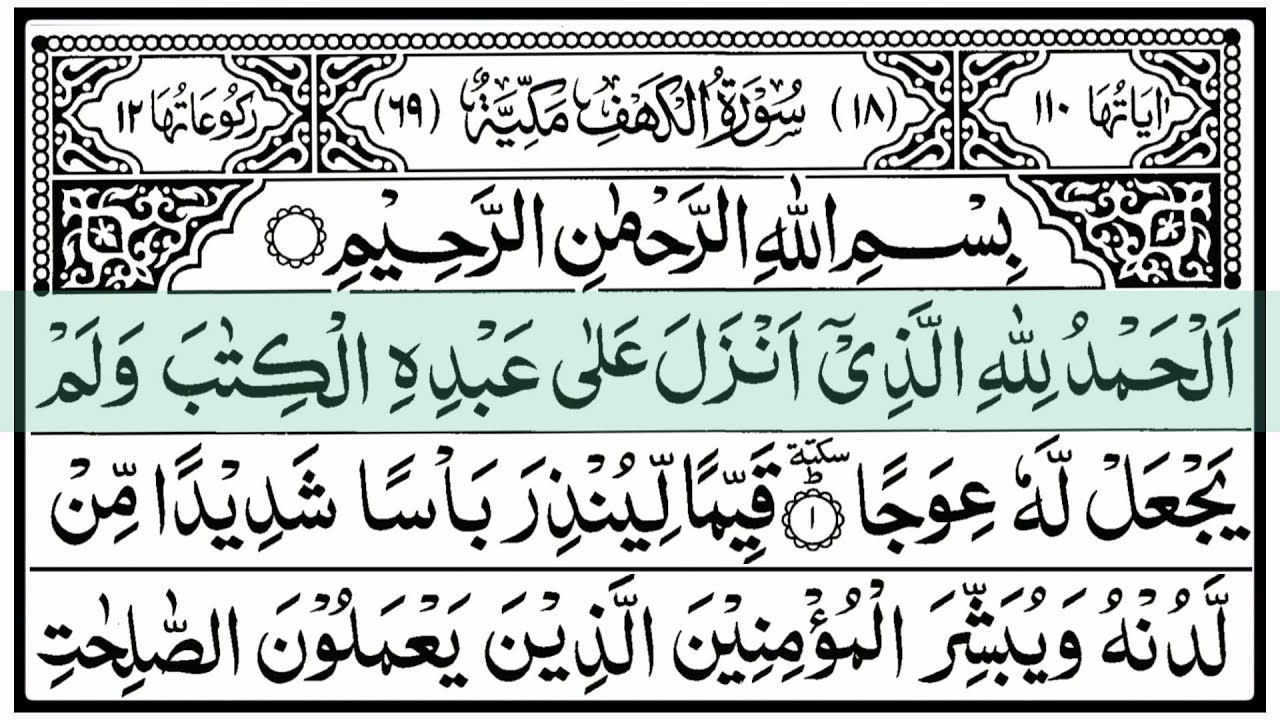 اٰیَاتُهَا ١١٠ (١٨) سُوْرَةُ الْكَهْفِ مَكِّيَّةٌ (٦٩) رُكُوْعَاتُهَا ١٢
بِسْمِ اللّٰهِ الرَّحْمٰنِ الرَّحِيْمِ
اَلْحَمْدُ لِلّٰهِ الَّذِیْۤ اَنْزَلَ عَلٰى عَبْدِهِ الْكِتٰبَ وَلَمْ
یَجْعَلْ لَّهٗ عِوَجًا ؕ سكتة ١ قَیِّمًا لِّیُنْذِرَ بَاْسًا شَدِیْدًا مِّنْ
لَّدُنْهُ وَیُبَشِّرَ الْمُؤْمِنِیْنَ الَّذِیْنَ یَعْمَلُوْنَ الصّٰلِحٰتِ